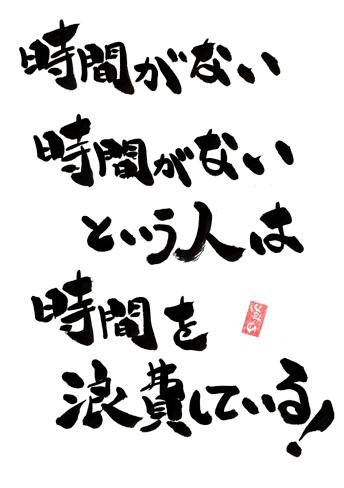 時間がない
時間がない
という人は
時間を
浪費している!